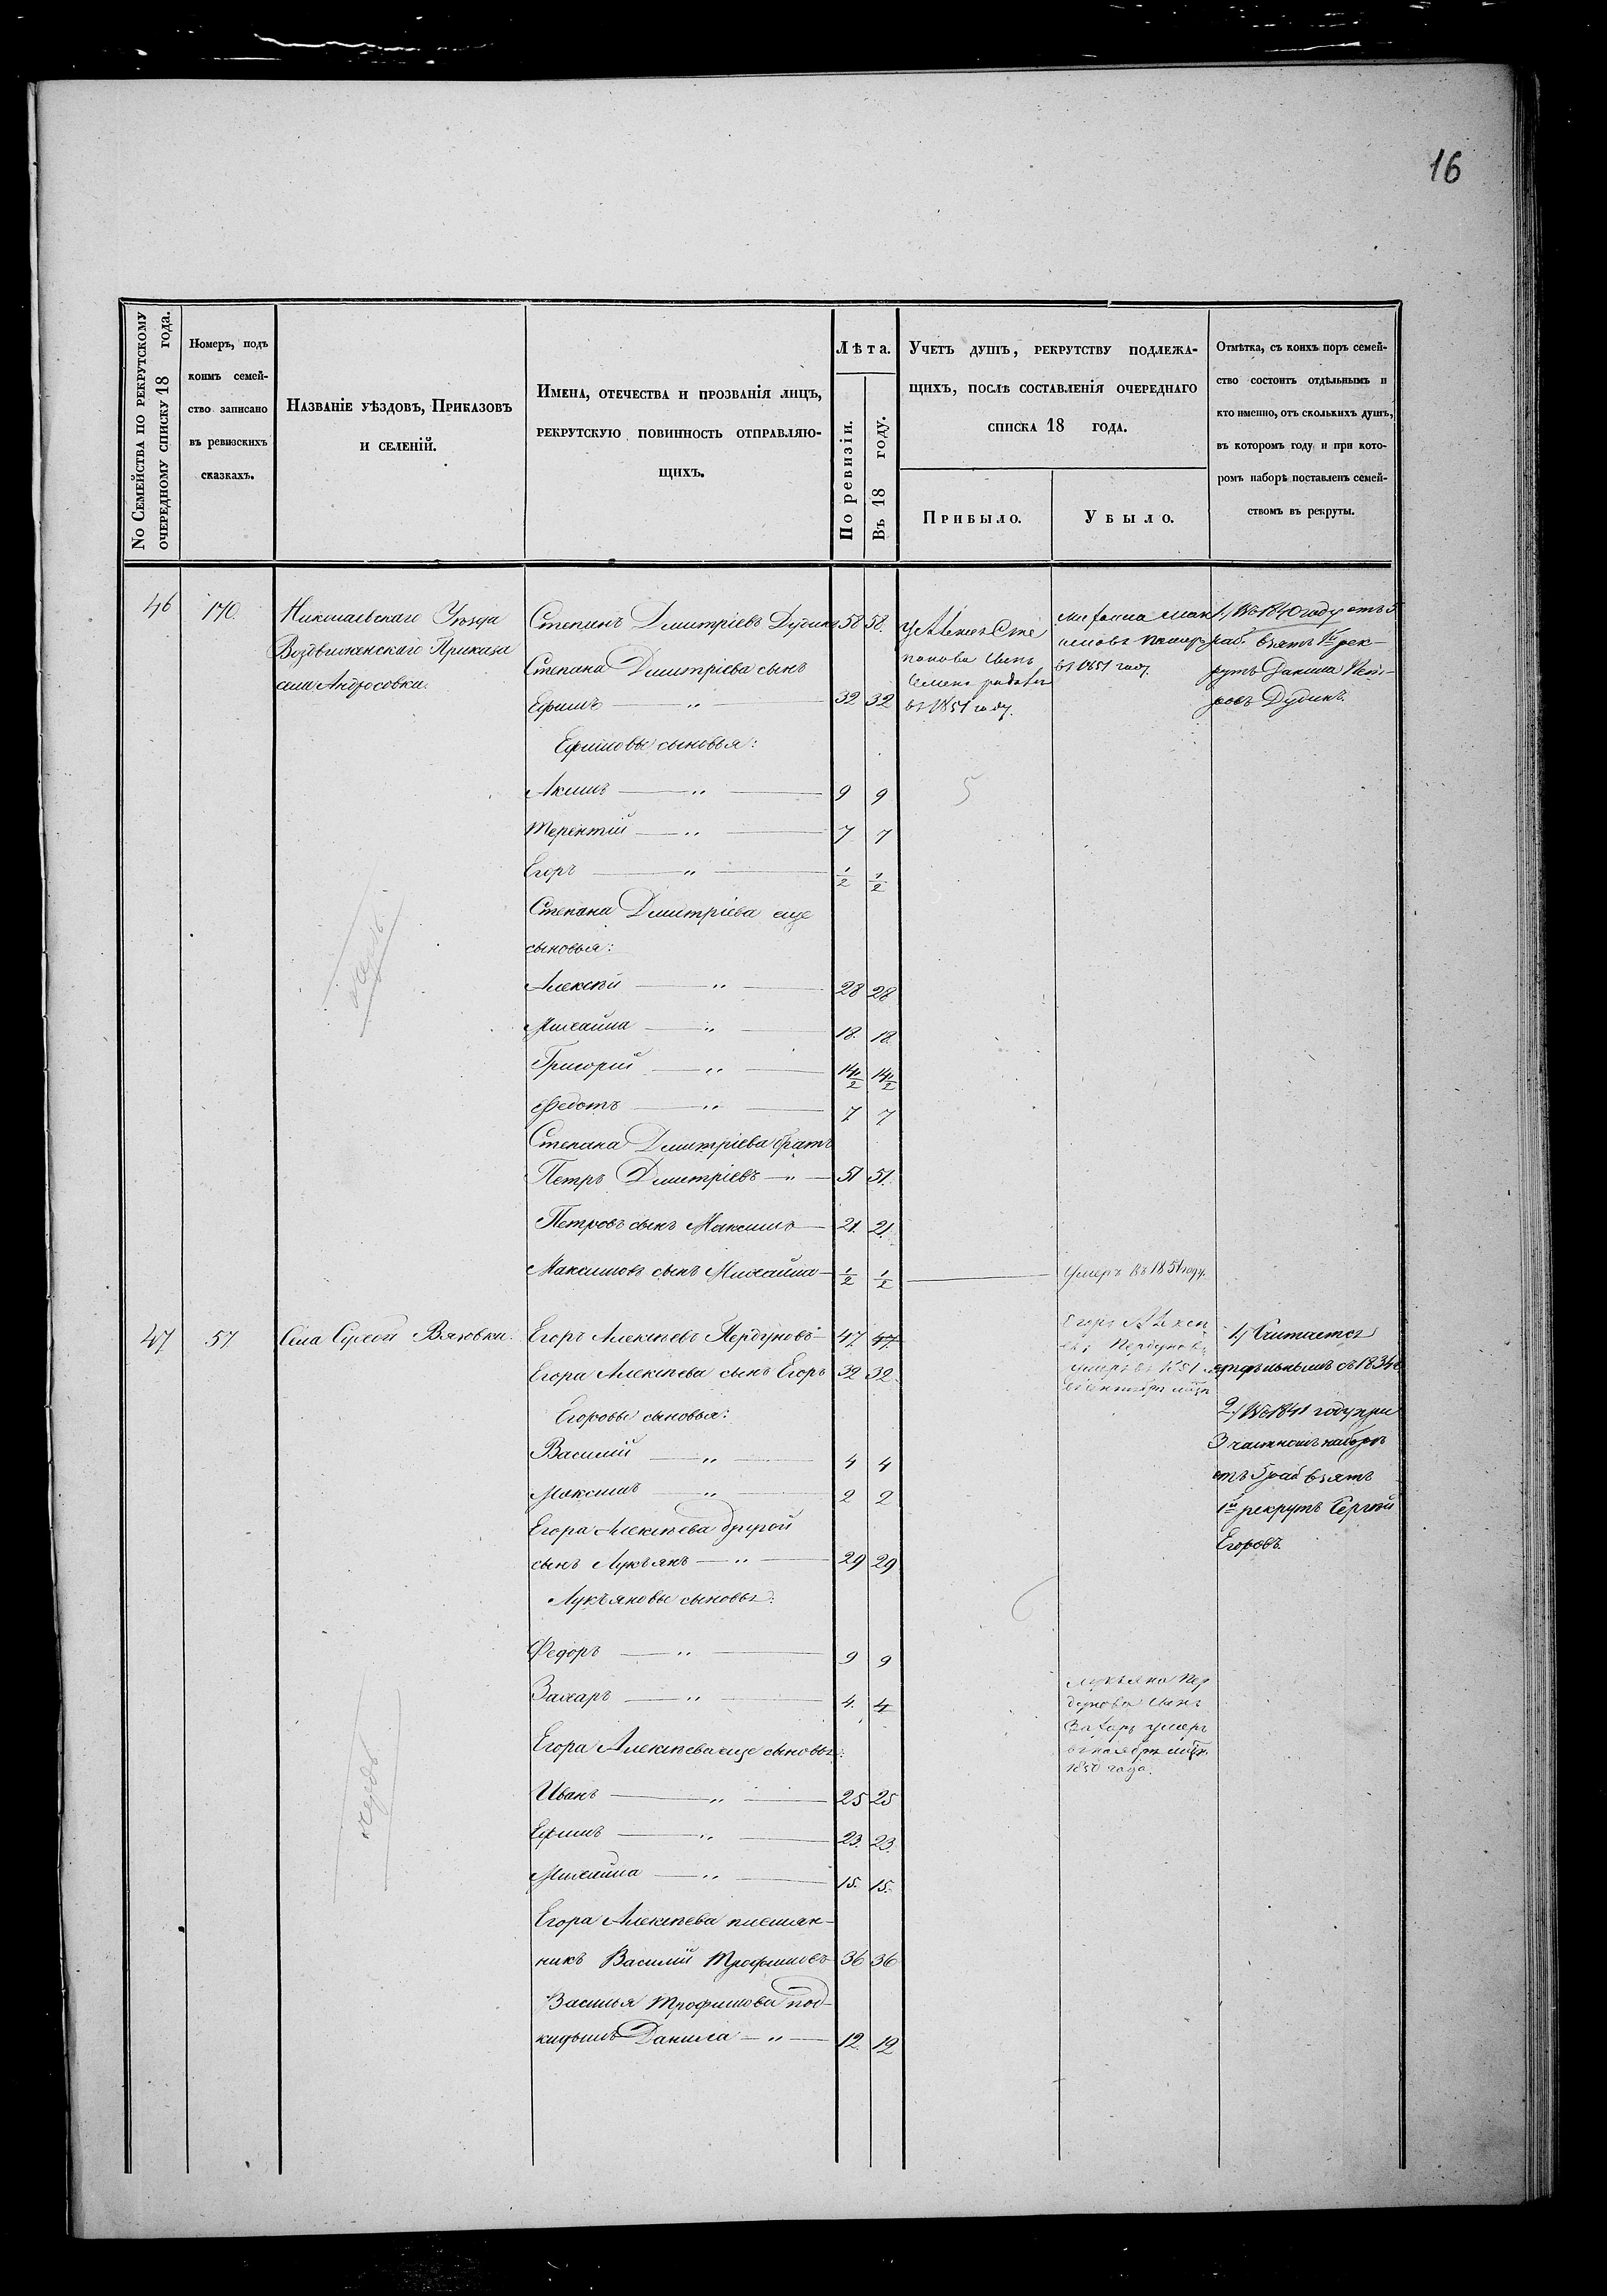 16
№ Семейства по рекрутскому
очередному списку 18 года.
Номеръ, подъ
коимъ семей-
ство записано
въ ревизскихъ
сказкахъ.
Названіе уѣздовъ, Приказовъ
и селеній.
Имена, отечества и прозванія лицъ,
рекрутскую повинность отправляю-
щихъ.
Лѣта.
По ревизіи.
Въ 18 году.
Учетъ душъ, рекрутству подлежа-
щихъ, послѣ составленія очереднаго
списка 18 года.
Прибыло.
Убыло.
Отмѣтка, съ коихъ поръ семей-
ство состоитъ отдѣльнымъ и
кто именно, отъ сколькихъ душъ,
въ которомъ году и при кото-
ромъ наборѣ поставленъ семей-
ствомъ въ рекруты.
46
170.
Николаевскаго Уѣзда
Воздвиженскаго Приказа
села Андросовки.
Степанъ Дмитріевъ Дудинъ 58 58.
Степана Дмитріева сынъ
Ефимъ — " — 32 32
Ефимовы сыновья:
Акимъ — " — 9 9
Терентій — " — 7 7
Егоръ — " — 1/2 1/2
Степана Дмитріева еще
сыновья:
Алексѣй — " — 28 28
Михайла — " — 18. 18.
Григорій — " — 14 1/2 14 1/2
Федотъ — " — 7 7
Степана Дмитріева братъ
Петръ Дмитріевъ — " — 51 51.
Петровъ сынъ Максимъ — 21. 21.
Максимовъ сынъ Михайла — 1/2 1/2
У Алексѣя Сте
панова сынъ
Семенъ родился
въ 1851 году.
5
Михайла Мак
симовъ померъ
въ 1851 году.
Умеръ въ 1851 году.
1, Въ 1840 году отъ 5
раб. взятъ 1й рек-
рутъ Данила Пет-
ровъ Дудинъ.
47
57.
Села Сухой Вязовки.
Егоръ Алексѣевъ Пердуновъ — 47. 47.
Егора Алексѣева сынъ Егоръ 32 32.
Егоровы сыновья:
Василій — " — 4 4
Максимъ — " — 2 2
Егора Алексѣева другой
сынъ Лукъянъ — " — 29 29
Лукъяновы сыновья:
Федоръ — " — 9 9
Захаръ — " — 4. 4
Егора Алексѣева еще сыновья:
Иванъ — " — 25 25
Ефимъ — " — 23. 23.
Михайла — " — 15. 15.
Егора Алексѣева племян-
никъ Василій Трофимовъ 36 36
Василья Трофимова под-
кидышъ Данила — " — 12. 12
Егоръ Алексѣ
евъ Пердуновъ
умеръ въ 1851
Лукьяна Пер
дунова сынъ
Захаръ умеръ
въ ноябрѣ мцѣ
1850 года.
1, Считается
отдѣльнымъ съ 1834 г.
2, Въ 1841 году при
3 частномъ наборѣ
отъ 5 раб взятъ
1й рекрутъ Сергѣй
Егоровъ.